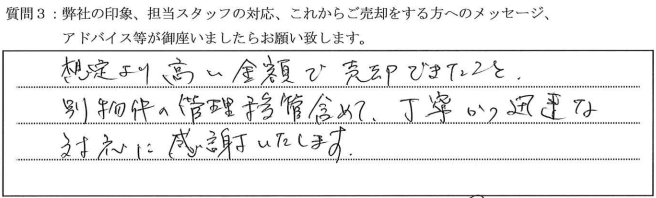 質問3：弊社の印象、担当スタッフの対応、これからご売却をする方へのメッセージ、
アドバイス等が御座いましたらお願い致します。
想定より高い金額で売却できたこと、
別物件の管理移管含めて、丁寧かつ迅速な
対応に感謝いたします。